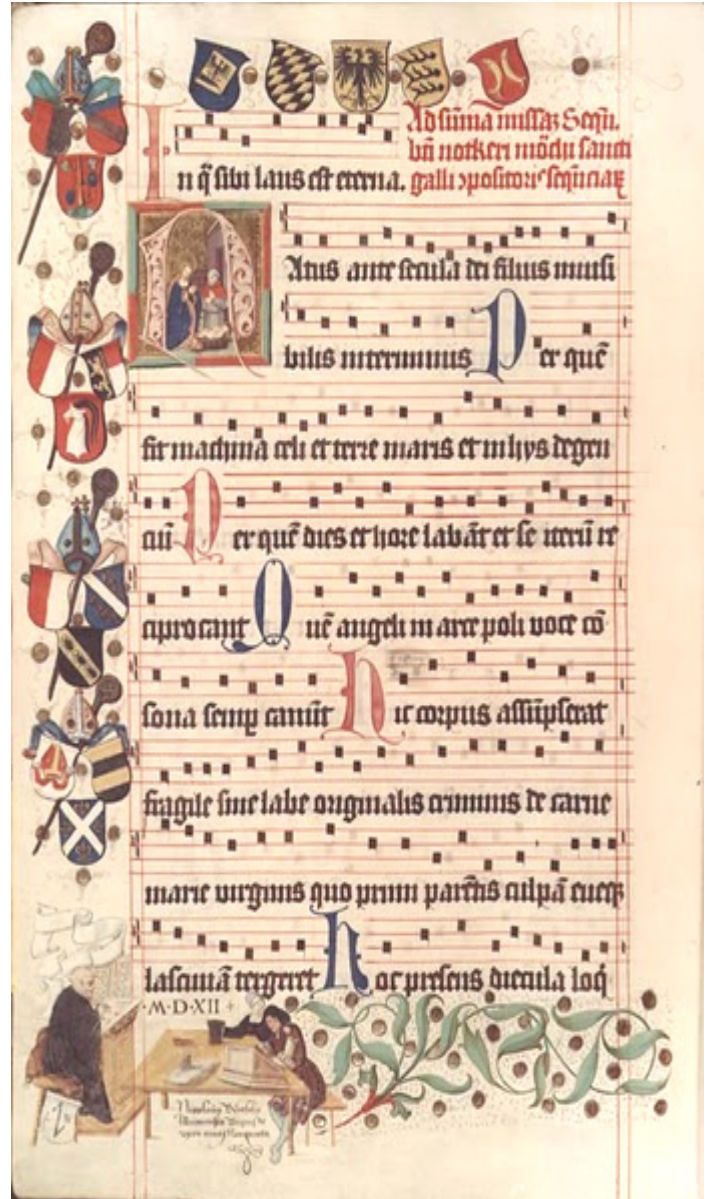 Ad sūmā missaꝫ Seqū.
In q̄ sibi laus est eterna.
bti notkeri mōchi sancti
galli ꝯpositoris seqn̄ciaꝝ
Natus ante secula dei filius inuisi
bilis interminus Per quē
fit machina celi et terre maris et in hys degen
ciū Per quē dies et hore labāt et se iterū re
ciprocant Quē angeli in arce poli voce cō
sona semꝑ canūt Hic corpus assūpserat
fragile sine labe originalis criminis de carne
marie virginis quo primi parētis culpā eueqꝫ
lasciuiā tergeret Hoc presens diecula loq̄
·M·D·XII·